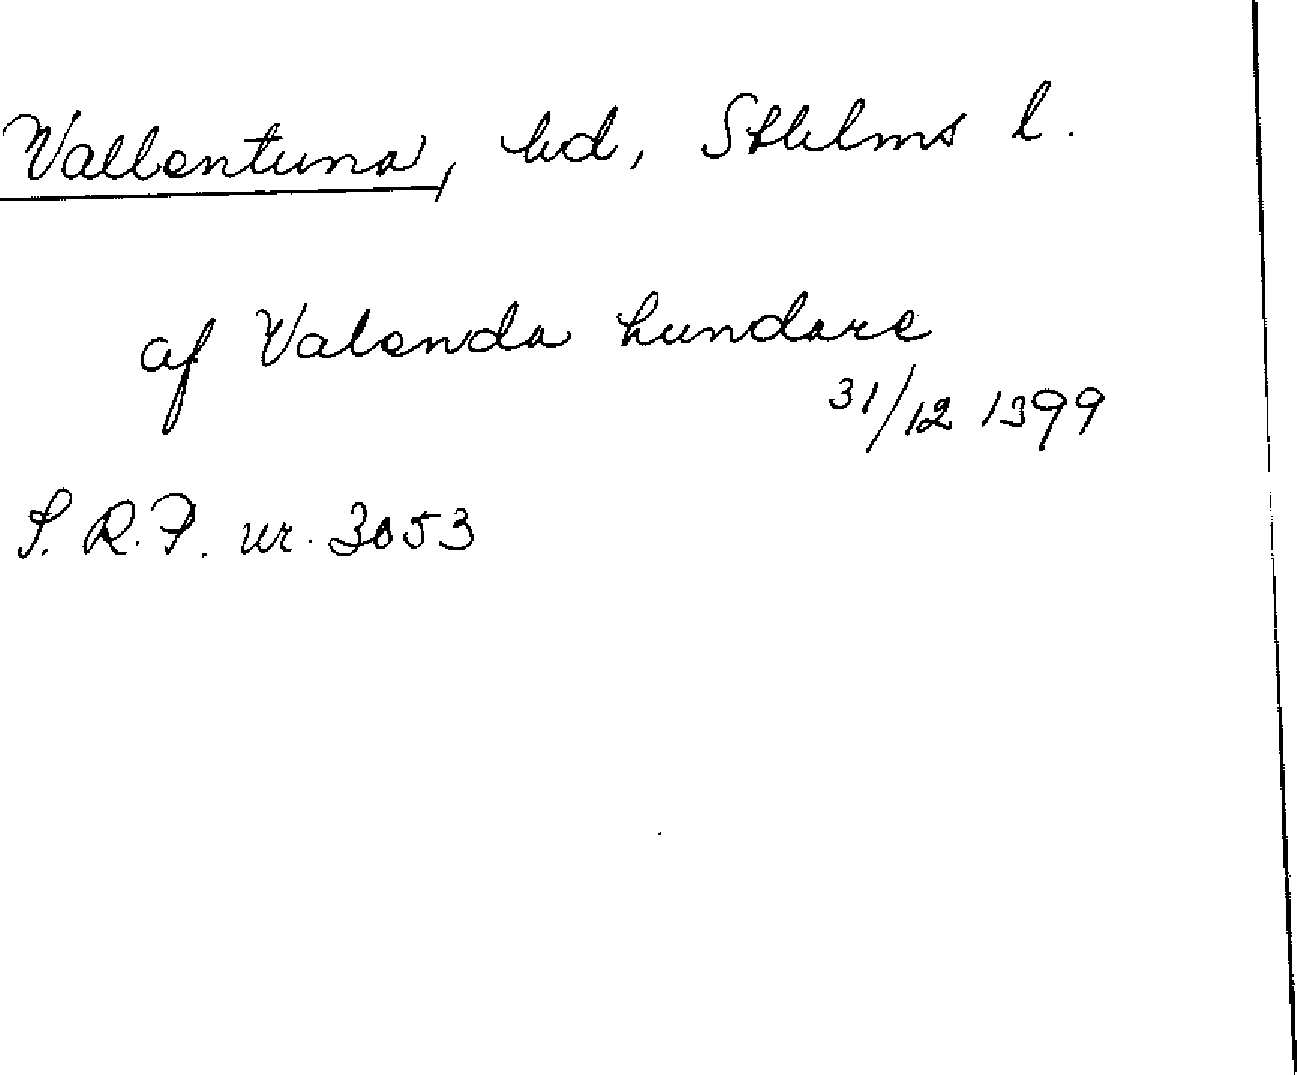 Vallentuna, hd, Sthlms l.
af Valenda hundare
31/12 1399
S. R. P. nr. 3053